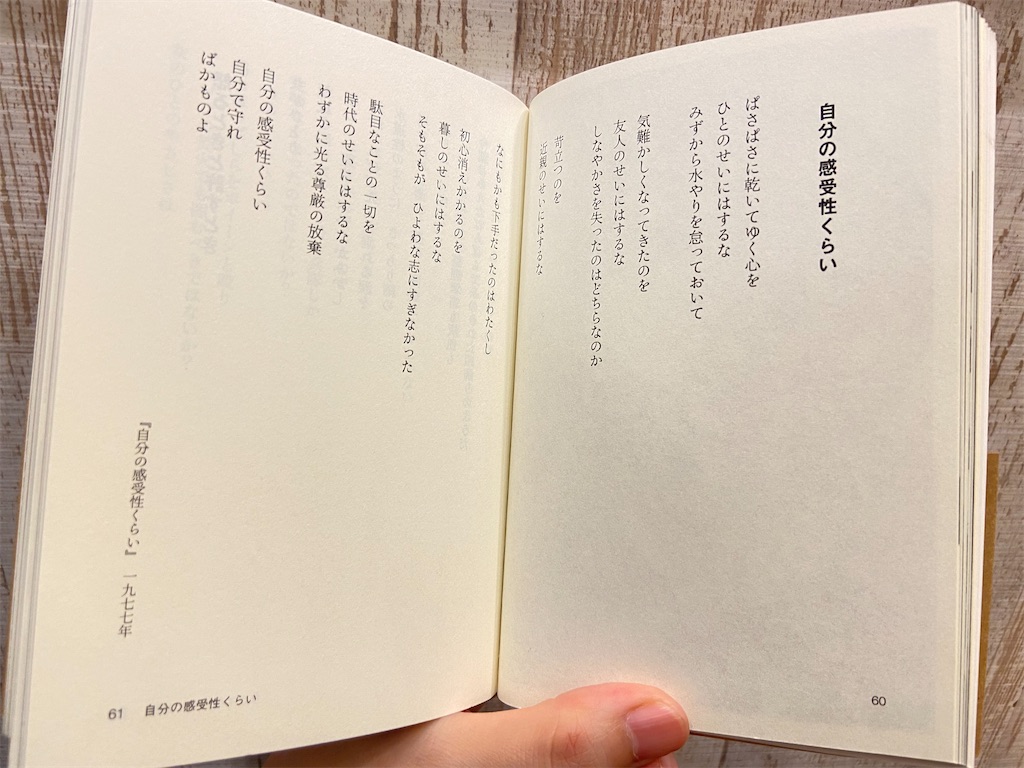 自分の感受性くらい
ぱさぱさに乾いてゆく心を
ひとのせいにはするな
みずから水やりを怠っておいて
気難かしくなってきたのを
友人のせいにはするな
しなやかさを失ったのはどちらなのか
苛立つのを
近親のせいにはするな
60
なにもかも下手だったのはわたくし
初心消えかかるのを
暮しのせいにはするな
そもそもが ひよわな志にすぎなかった
駄目なことの一切を
時代のせいにはするな
わずかに光る尊厳の放棄
自分の感受性くらい
自分で守れ
ばかものよ
『自分の感受性くらい』 一九七七年
61 自分の感受性くらい